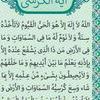 آية الكرسي
اللَّهُ لَا إِلَٰهَ إِلَّا هُوَ الْحَيُّ الْقَيُّومُ لَا تَأْخُذُهُ
سِنَةٌ وَلَا نَوْمٌ لَهُ مَا فِي السَّمَاوَاتِ وَمَا
فِي الْأَرْضِ مَنْ ذَا الَّذِي يَشْفَعُ عِنْدَهُ إِلَّا
بِإِذْنِهِ يَعْلَمُ مَا بَيْنَ أَيْدِيهِمْ وَمَا خَلْفَهُمْ
وَلَا يُحِيطُونَ بِشَيْءٍ مِنْ عِلْمِهِ إِلَّا بِمَا
شَاءَ وَسِعَ كُرْسِيُّهُ السَّمَاوَاتِ وَالْأَرْضَ